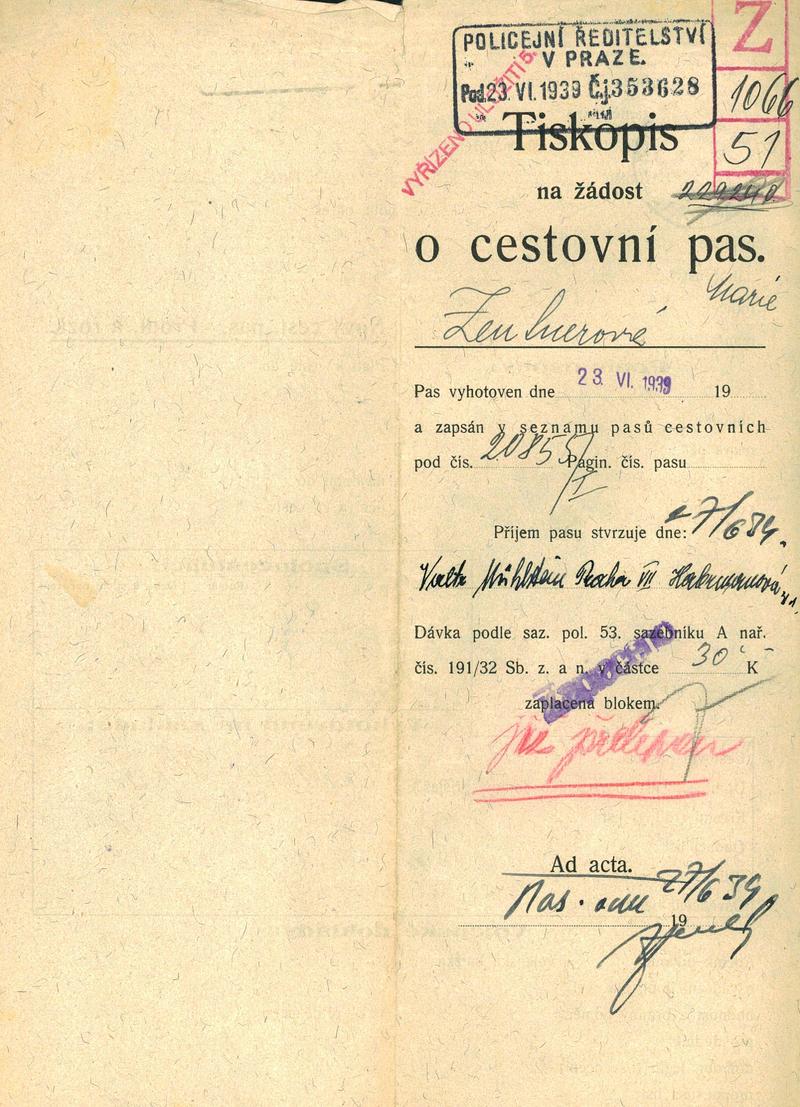 POLICEJNÍ ŘEDITELSTVÍ
V PRAZE.
Pod. 23. VI. 1939 Č.j. 353628
Z
1066
51
VYŘÍZENO ULOŽITI 5.
Tiskopis
na žádost
o cestovní pas.
Marie
Zentnerová
Pas vyhotoven dne 23. VI. 1939 19
a zapsán v seznamu pasů cestovních
pod čís. 20855/I Pagin. čís. pasu
Příjem pasu stvrzuje dne: 27/6 39.
Mühlstein Praha VII
Dávka podle saz. pol. 53. sazebníku A nař.
čís. 191/32 Sb. z. a n. v částce 30 K
zaplacena blokem.
Ad acta.
27/6 39
19